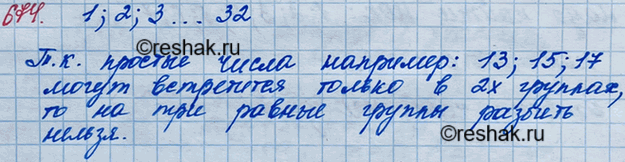 674. 1; 2; 3 ... 32
©reshak.ru
Т.к. простые числа например: 13; 15; 17
могут встретится только в 2х группах,
©reshak.ru
то на три равные группы разбить
нельзя.